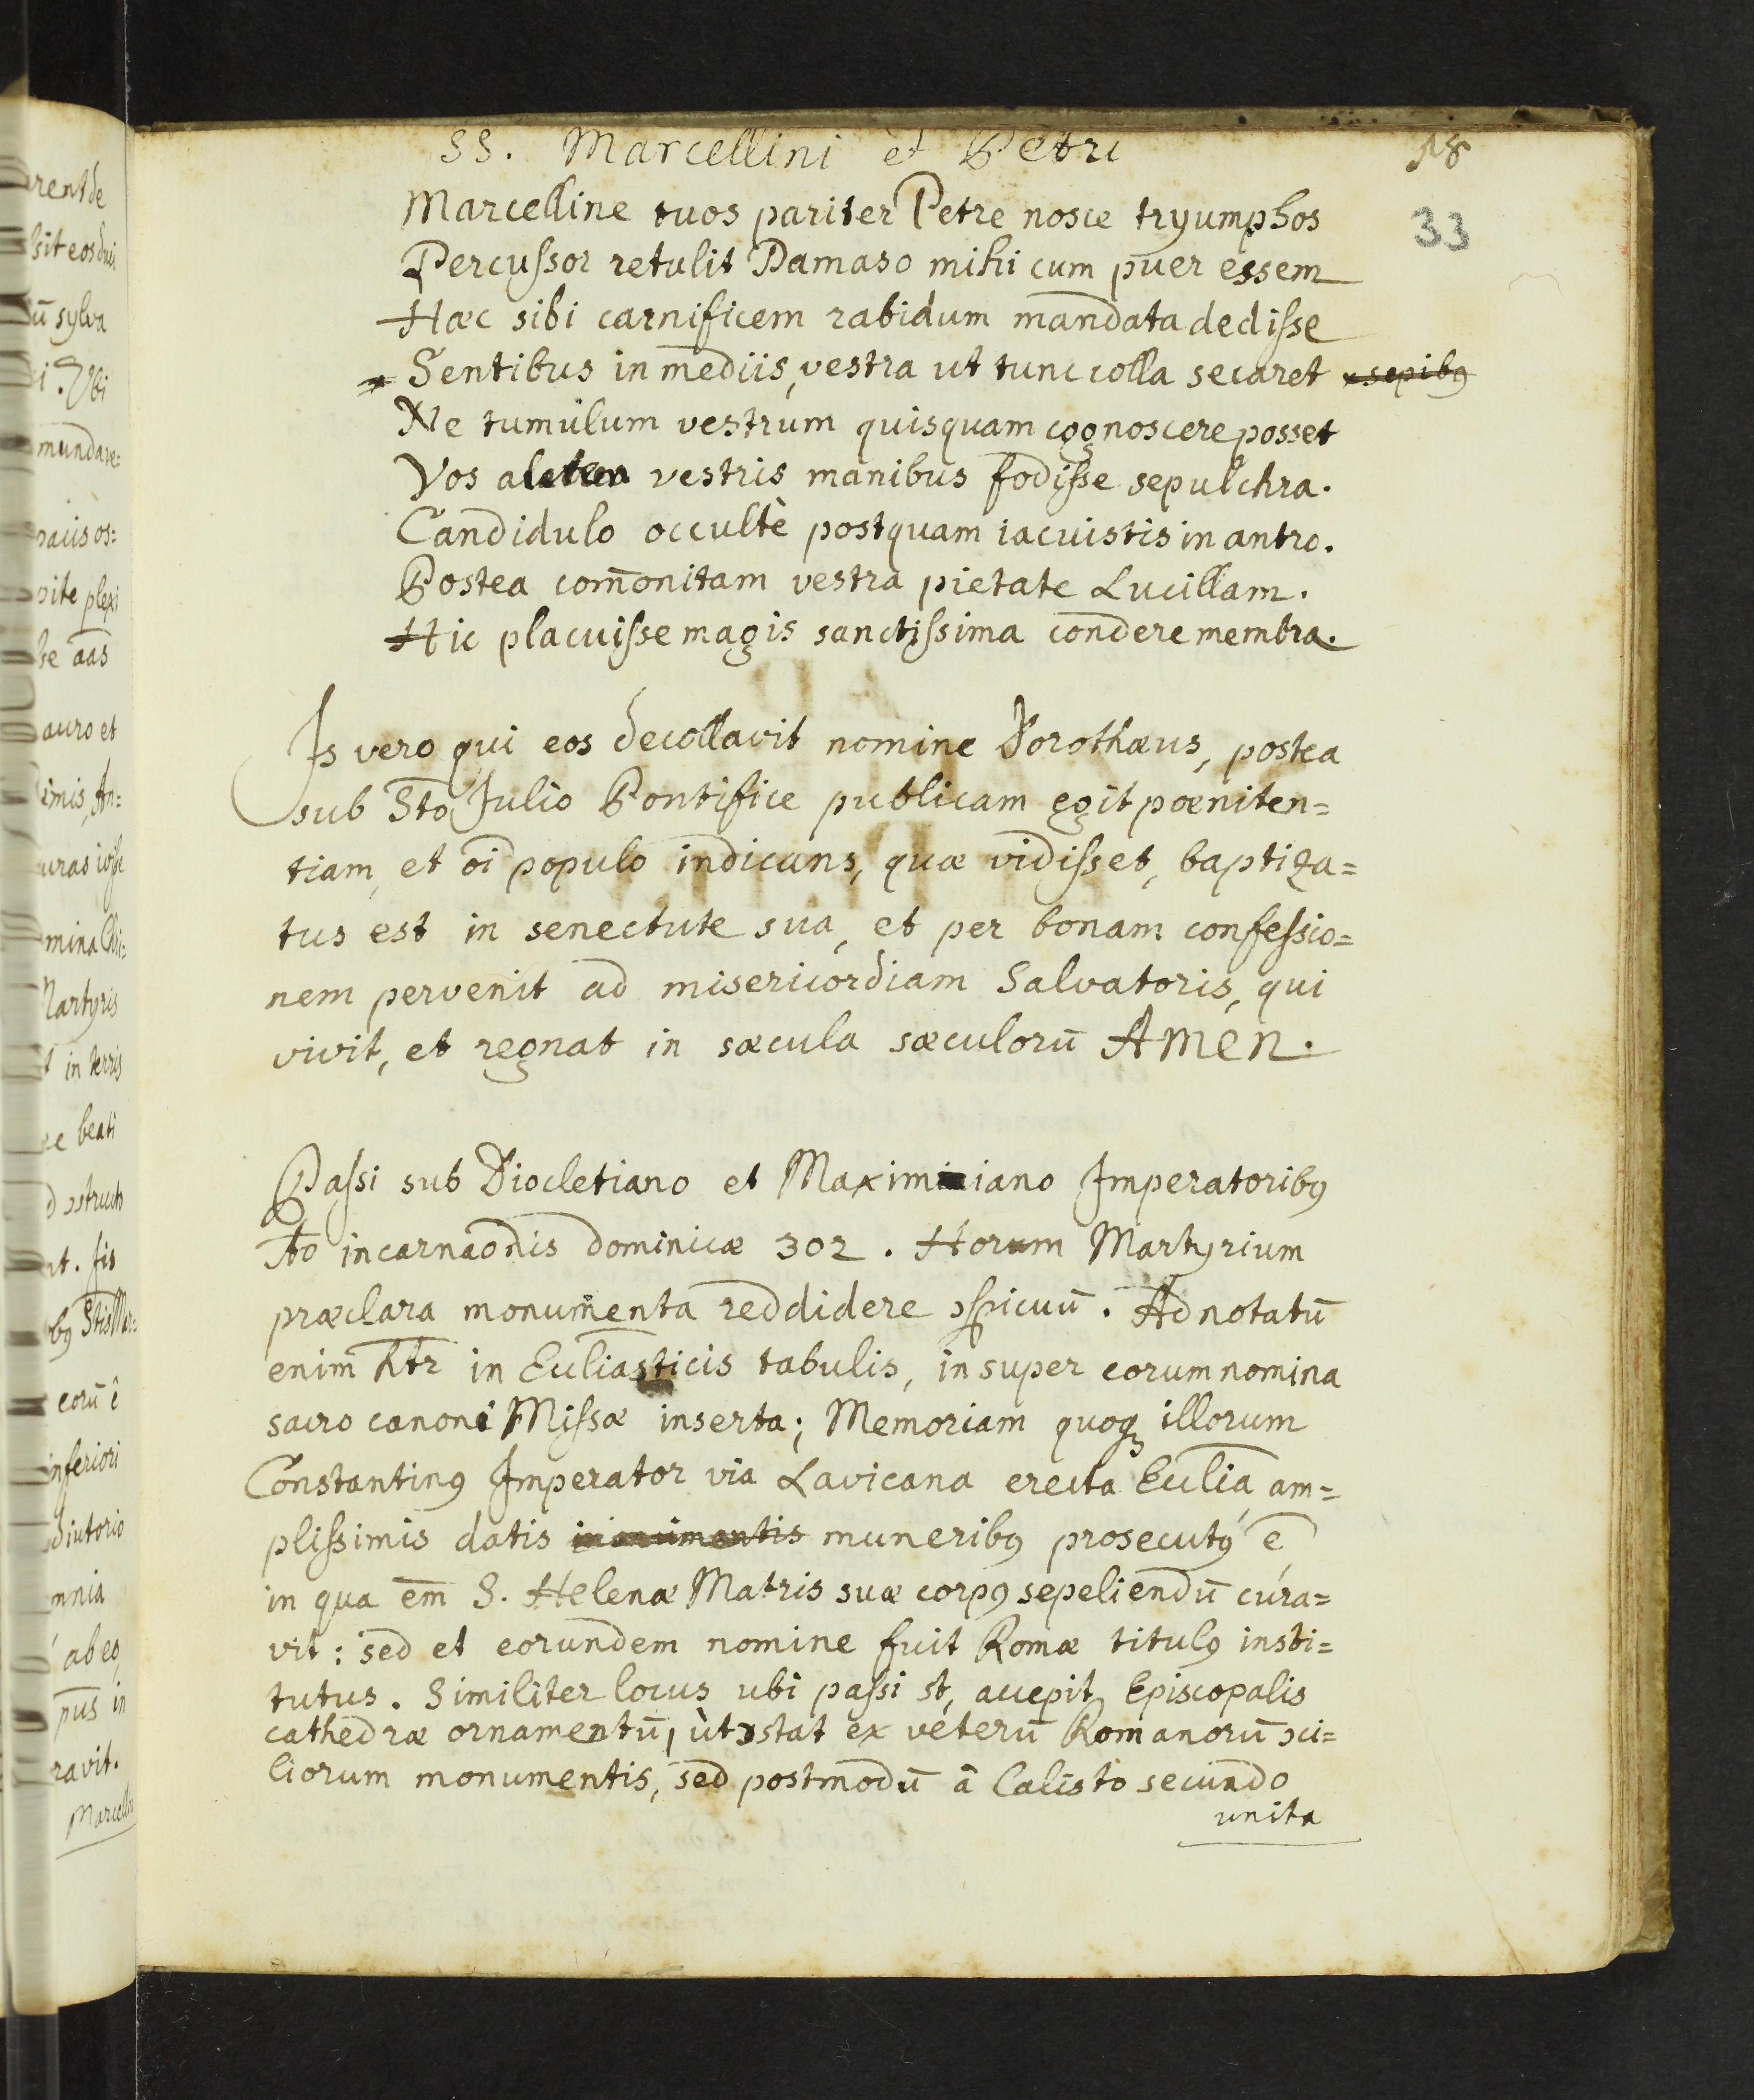 SS. Marcellini et Petri
18
33
Marcelline tuos pariter Petre nosce tryumphos
Percussor retulit Damaso mihi cum puer essem
Hæc sibi carnificem rabidum mandata dedisse
Sentibus in mediis, vestra ut tunc colla secaret × sepibꝰ
Ne tumulum vestrum quisquam cognoscere posset
Vos vestris manibus fodisse sepulchra.
Candidulo occultè postquam iacuistis in antro.
Postea com̄onitam vestra pietate Lucillam.
Hic placuisse magis sanctissima condere membra.
Is vero qui eos decollavit nomine Dorothæus, postea
sub Sto Julio Pontifice publicam egit pœniten=
tiam, et oī populo indicans, quæ vidisset, baptiza=
tus est in senectute sua, et per bonam confessio=
nem pervenit ad misericordiam Salvatoris, qui
vivit, et regnat in sæcula sæculorū Amen.
Passi sub Diocletiano et Maximiano Imperatoribꝰ
Ao incarnaōnis dominicæ 302. Horum Martyrium
præclara monumenta reddidere ɔspicuū. Adnotatū
enim htr̄ in Eccliasticis tabulis, insuper eorum nomina
sacro canoni Missæ inserta; Memoriam quoqꝫ illorum
Constantinꝰ Imperator via Lavicana erecta Ecclia am=
plissimis datis muneribꝰ prosecutꝰ ē
in qua em̄ S. Helenæ Matris suæ corpꝰ sepeliendū cura=
vit: sed et eorundem nomine fuit Romæ titulꝰ insti=
tutus. Similiter locus ubi passi st̄, accepit Episcopalis
cathedræ ornamentū, ut ɔstat ex veterū Romanorū ɔci=
liorum monumentis, sed postmodū â Calisto secundo
unita